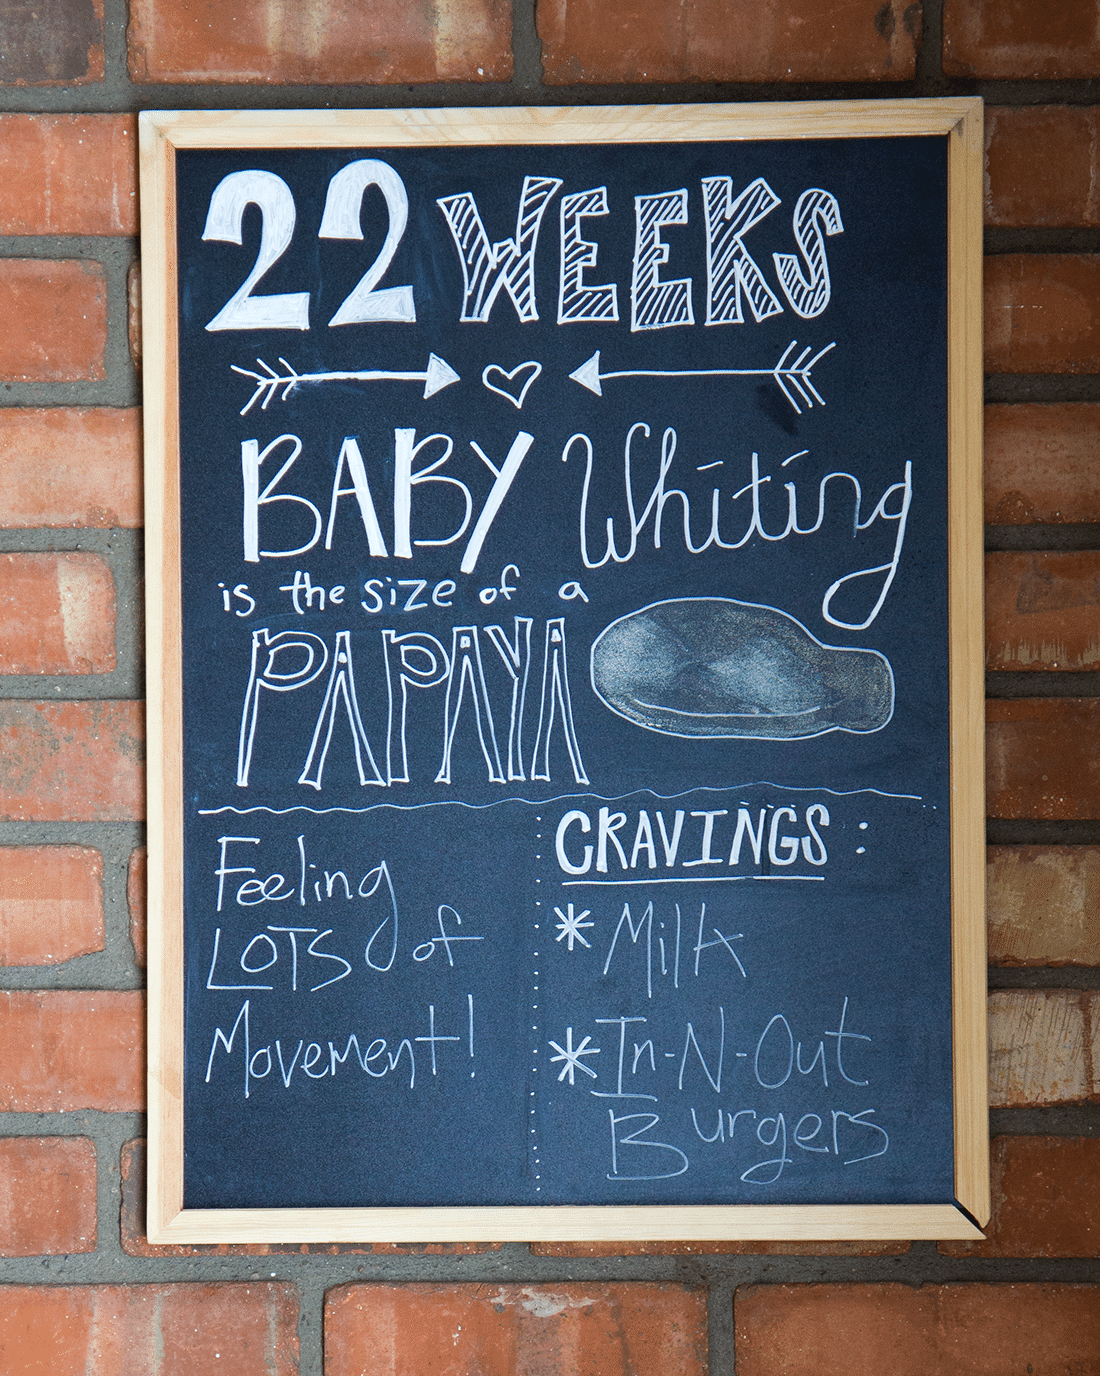 22 WEEKS
BABY Whiting
is the size of a
PAPAYA
Feeling
LOTS of
Movement!
CRAVINGS:
* Milk
* In-N-Out
Burgers